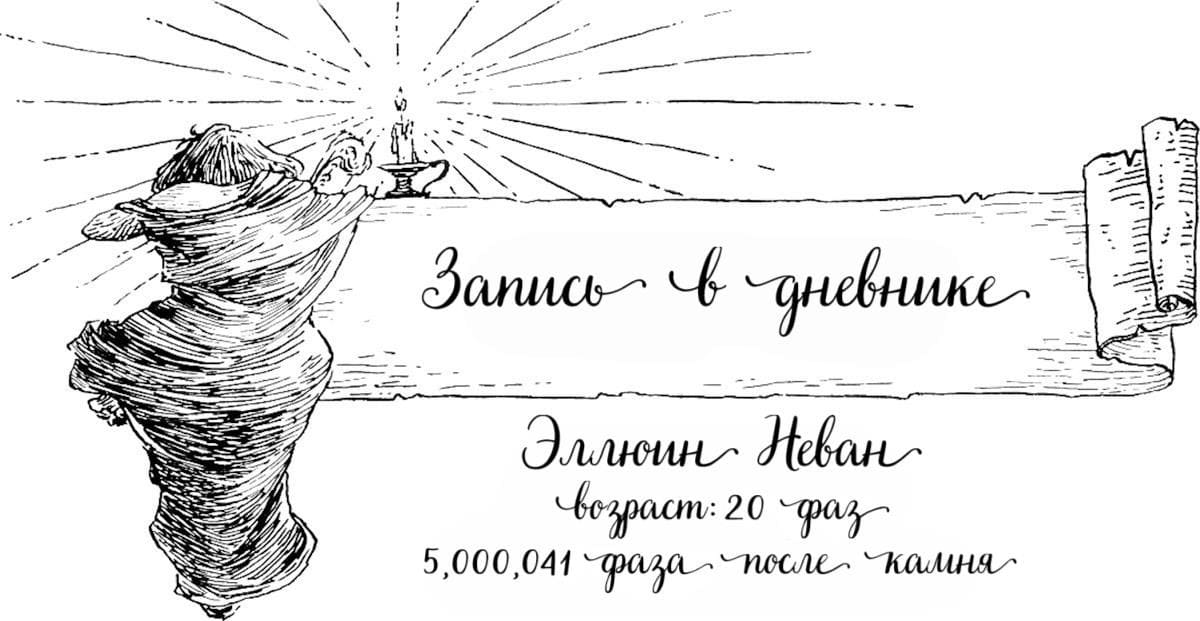 Запись в дневнике
Эллюин Неван
возраст: 20 фаз
5,000,041 фаза после камня